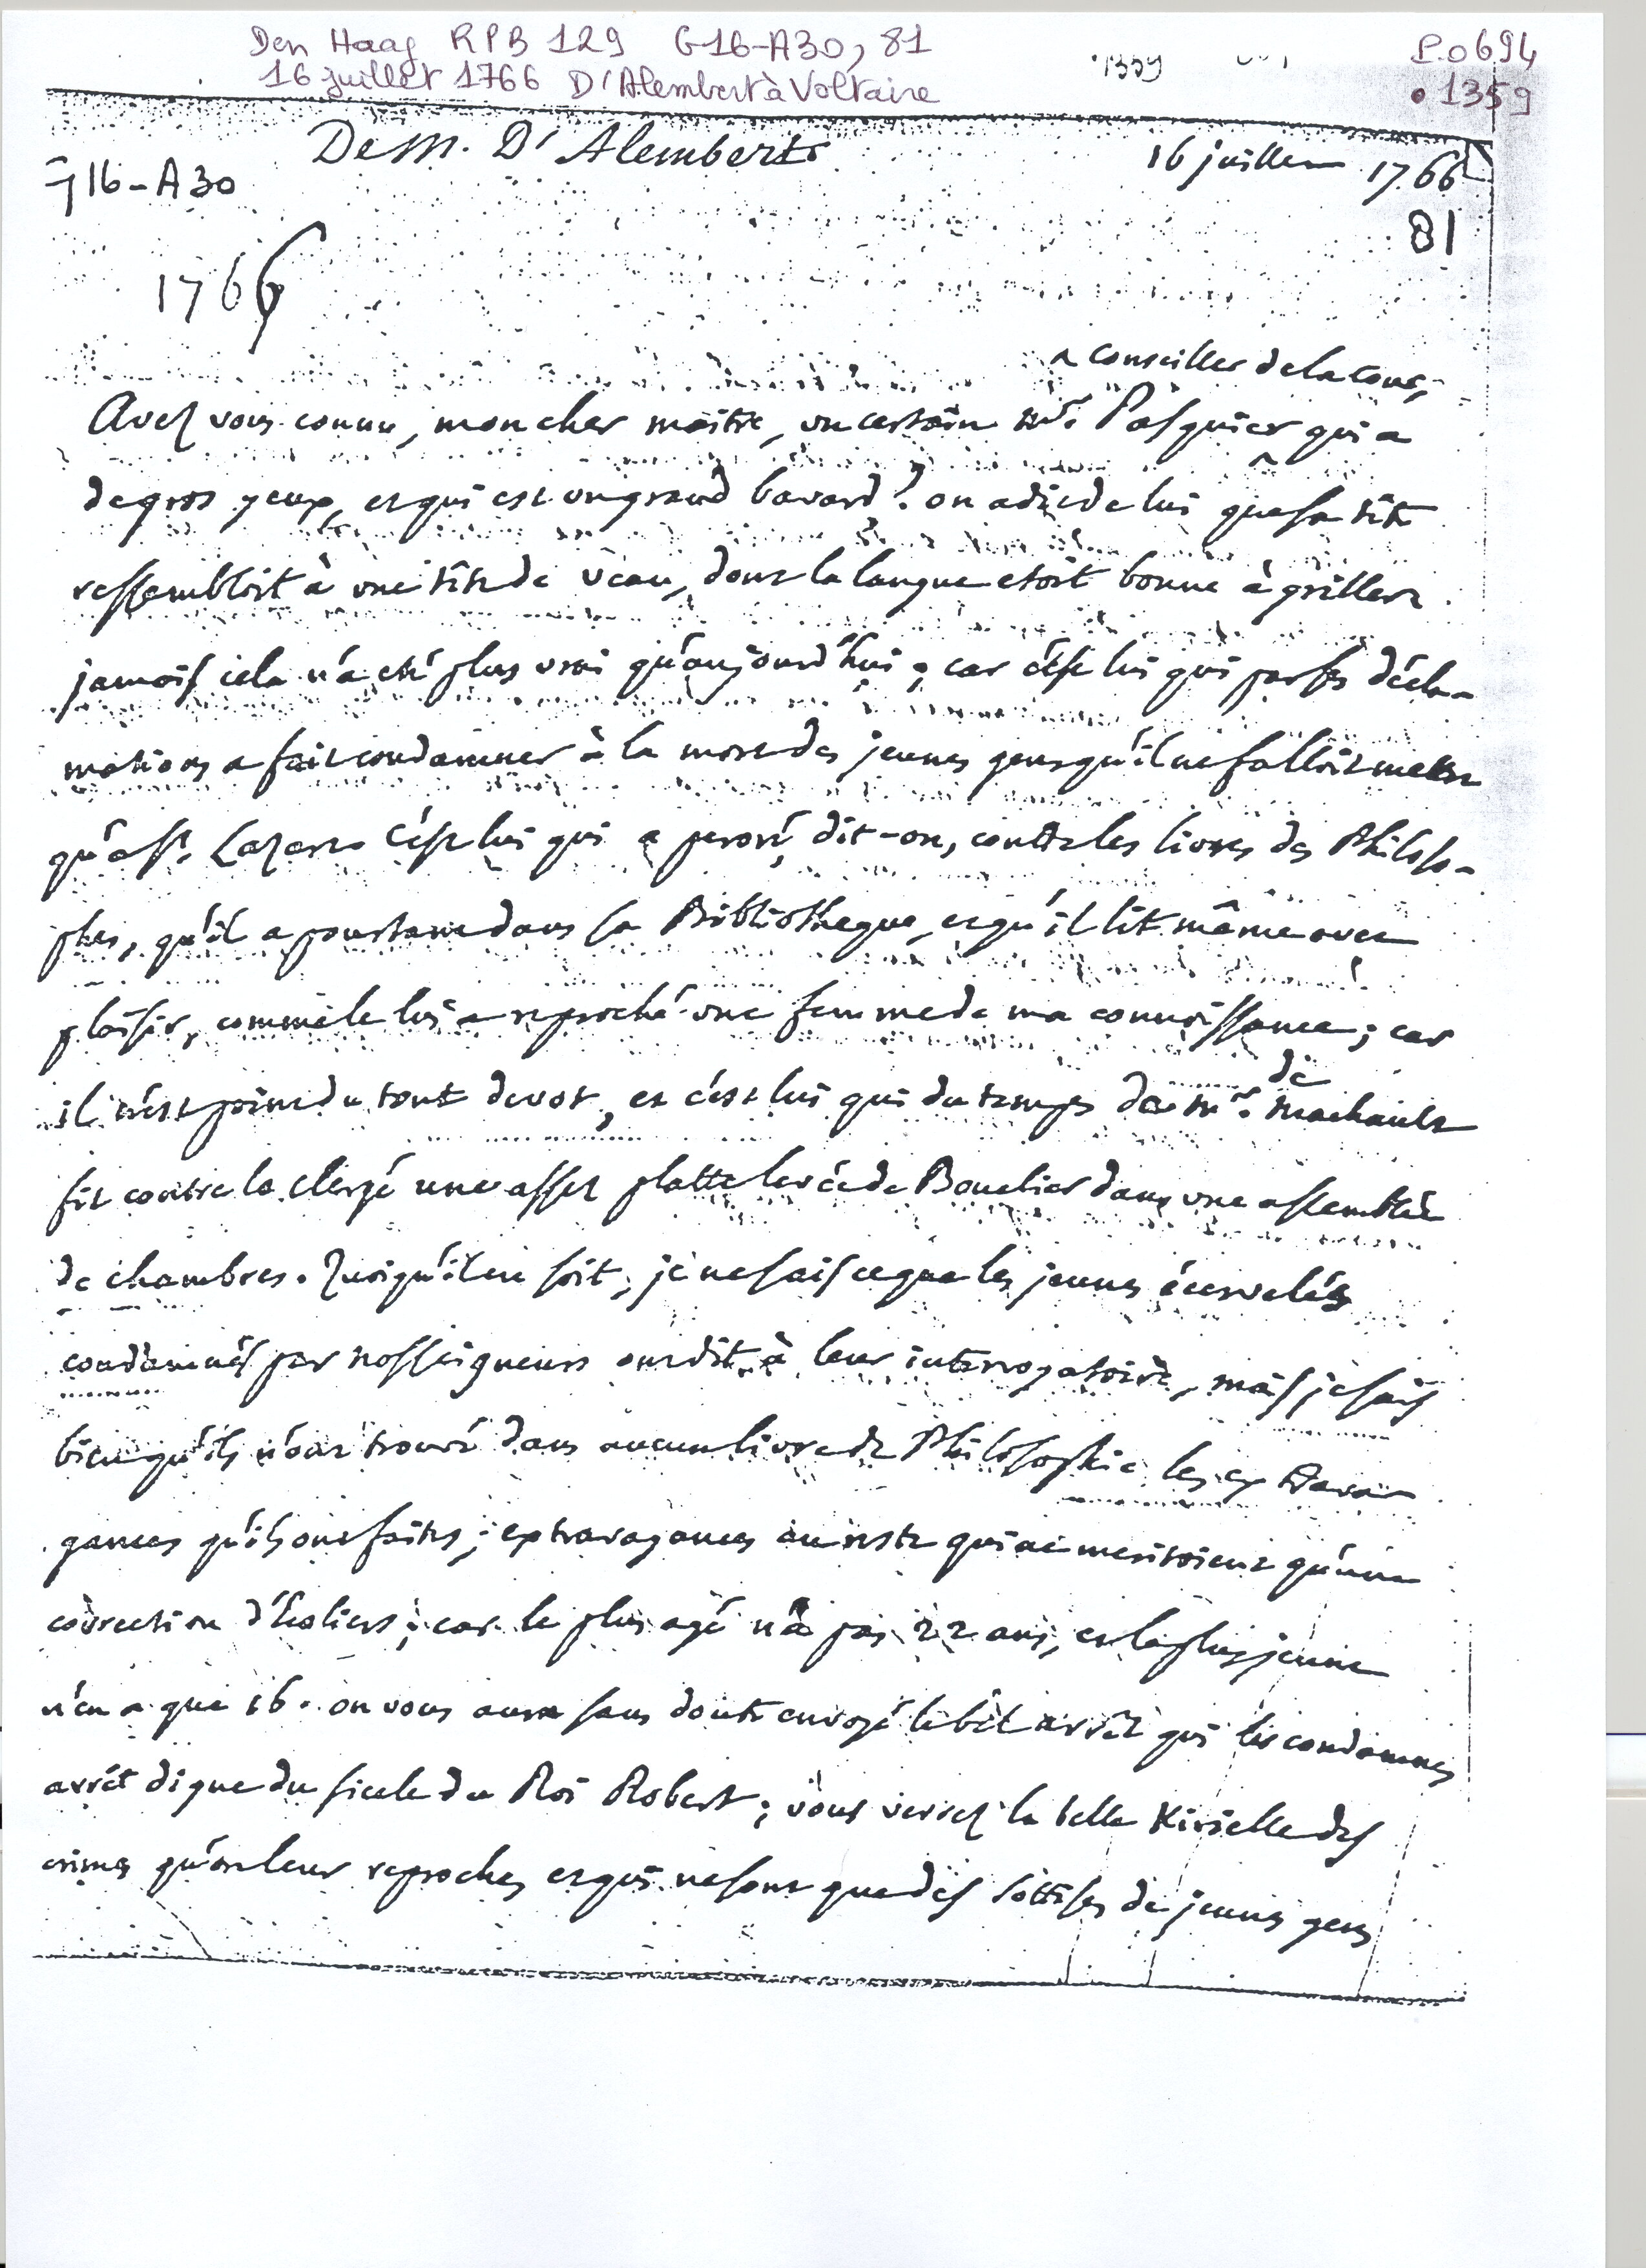 Den Haag RPB 129 G16-A30, 81
16 juillet 1766 D'Alembert à Voltaire
1359
P.0694
• 1359
De M. D'Alembert
16 juillet 1766
G16-A30
81
1766
conseiller de la cour,
Avez vous connu, mon cher maitre, un certain Mr. Pasquier qui a
de gros yeux, et qui est un grand bavard? on a dit de lui que sa tête
ressembloit à une tête de veau, dont la langue etoit bonne à griller.
jamais cela n'a eté plus vrai qu'aujourd'hui; car c'est lui qui par ses décla-
mations a fait condamner à la mort des jeunes gens qu'il ne falloit mettre
qu'a St. Lazare. C'est lui qui a peroré, dit-on, contre les livres des Philoso-
phes, qu'il a pourtant dans sa Bibliotheque, et qu'il lit même avec
plaisir, comme le lui a reproché une femme de ma connoissance; car
il n'est point du tout devot, et c'est lui qui du temps de Mr. de Machault
fit contre le clergé une assez platte levée de Bouclier dans une assemblée
de chambres. Quoiqu'il en soit, je ne sais ce que les jeunes écervelés
condamnés par nosseigneurs ont dit à leur interrogatoire, mais je sais
bien qu'ils n'ont trouvé dans aucun livre de Philosophie les extrava-
gances qu'ils ont faites; extravagances au reste qui ne meritoient qu'une
correction d'écoliers; car le plus agé n'a pas 22 ans, et le plus jeune
n'en a que 16. on vous aura sans doute envoyé le bel arrêt qui les condamne,
arrêt digne du siecle du Roi Robert; vous verrez la belle Kirielle des
crimes qu'on leur reproche, et qui ne sont que des sottises de jeunes gens